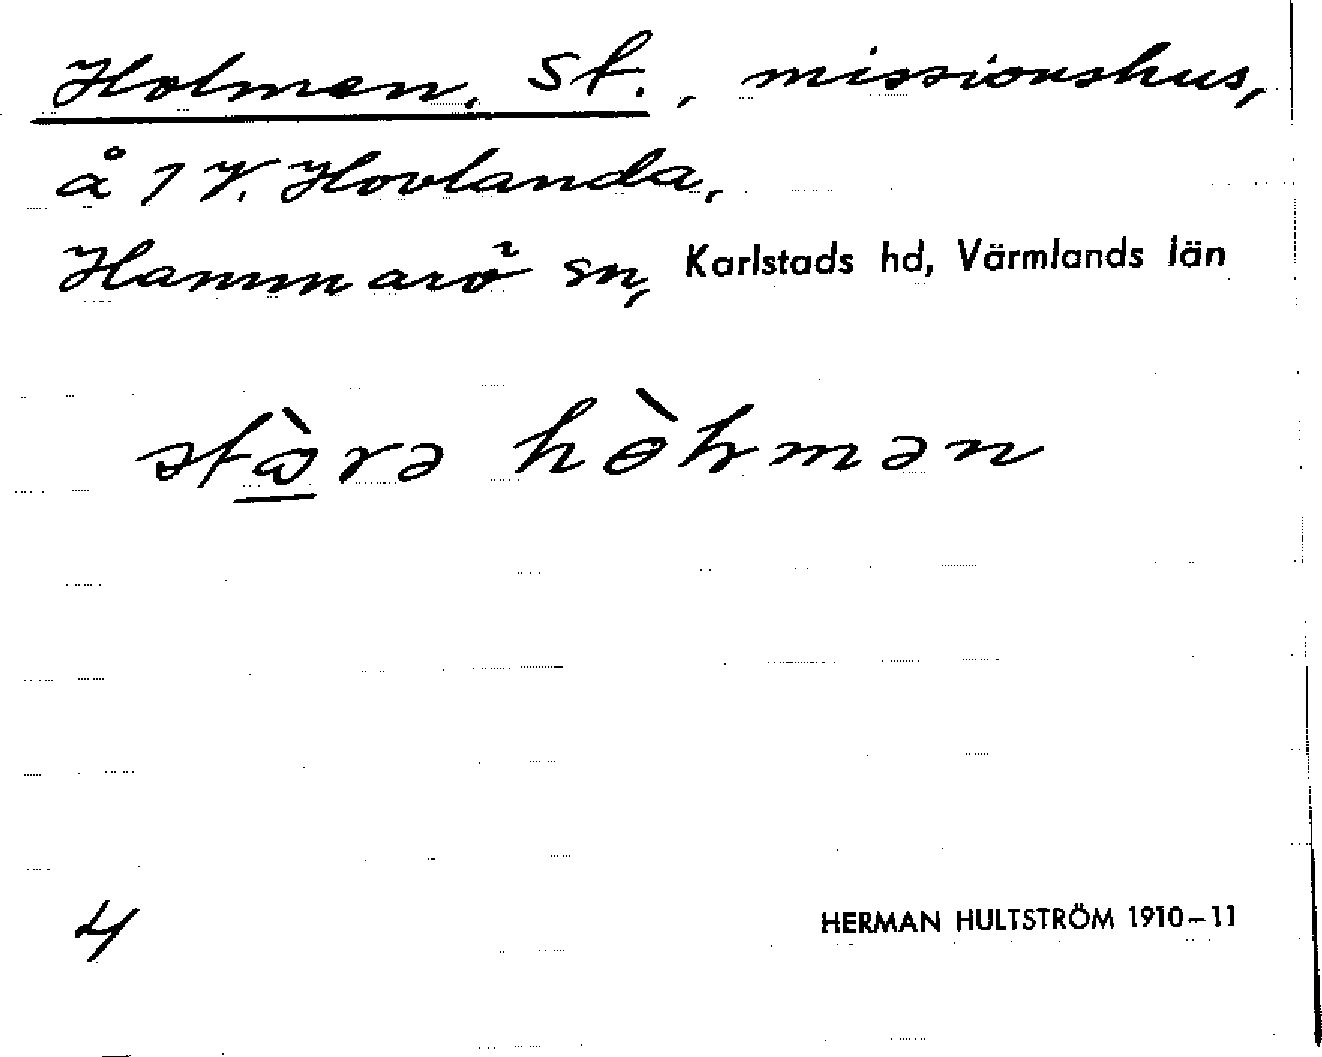 Holmen, St., missionshus,
å 1 V. Hovlanda,
Hammarö sn, Karlstads hd, Värmlands län
stɷ̀rə hòɫmən
4
HERMAN HULTSTRÖM 1910-11